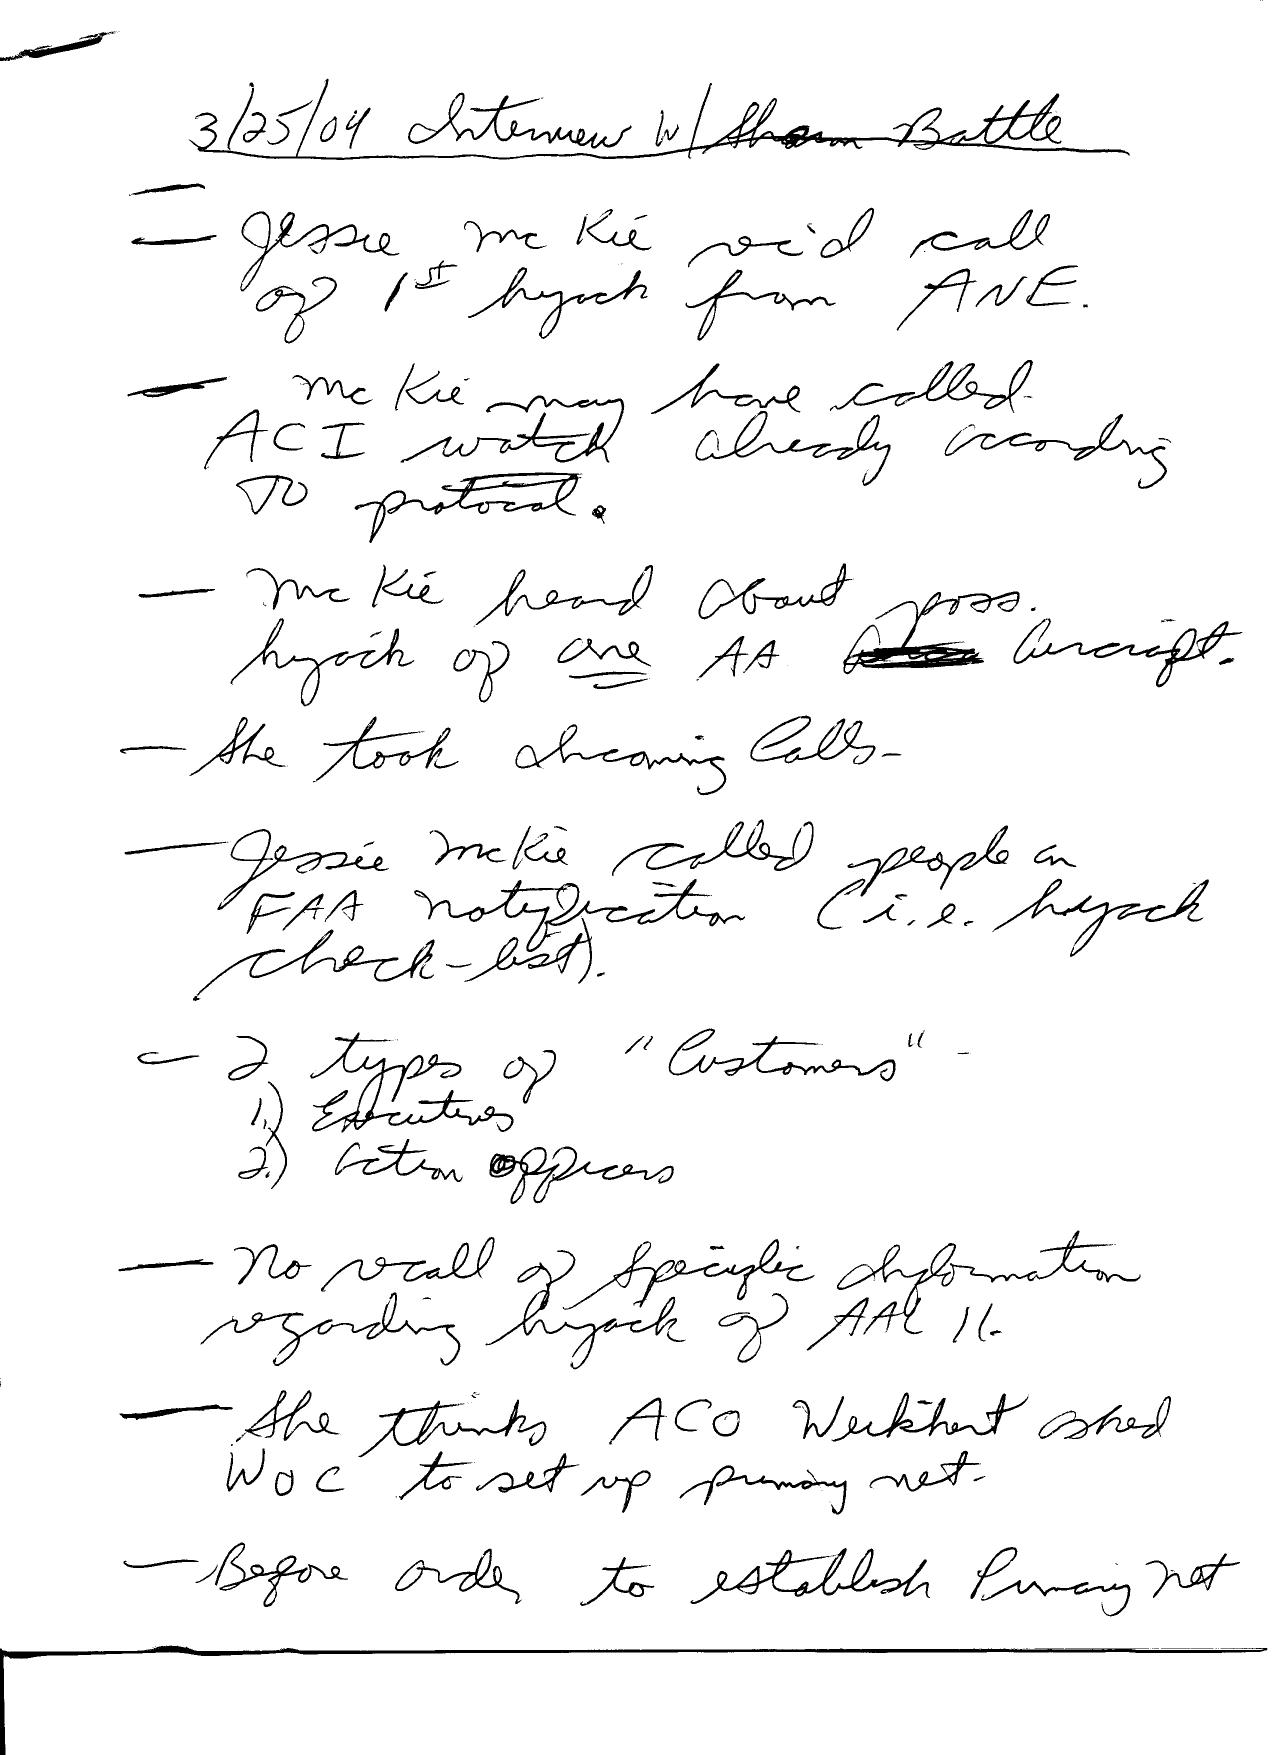 3/25/04 Interview w/ Sharon Battle
— Jessie McKie rec'd call
of 1st hijack from ANE.
— McKie may have called
ACI watch already according
to protocol.
— McKie heard about poss.
hijack of one AA Aircraft.
— She took incoming calls -
— Jessie McKie called people on
FAA notification (i.e. hijack
check-list).
— 2 types of "Customers" -
1.) Executives
2.) Action officers
— No recall of specific information
regarding hijack of AAL 11.
— She thinks ACO Weikhert asked
WOC to set up primary net.
— Before order to establish Primary Net